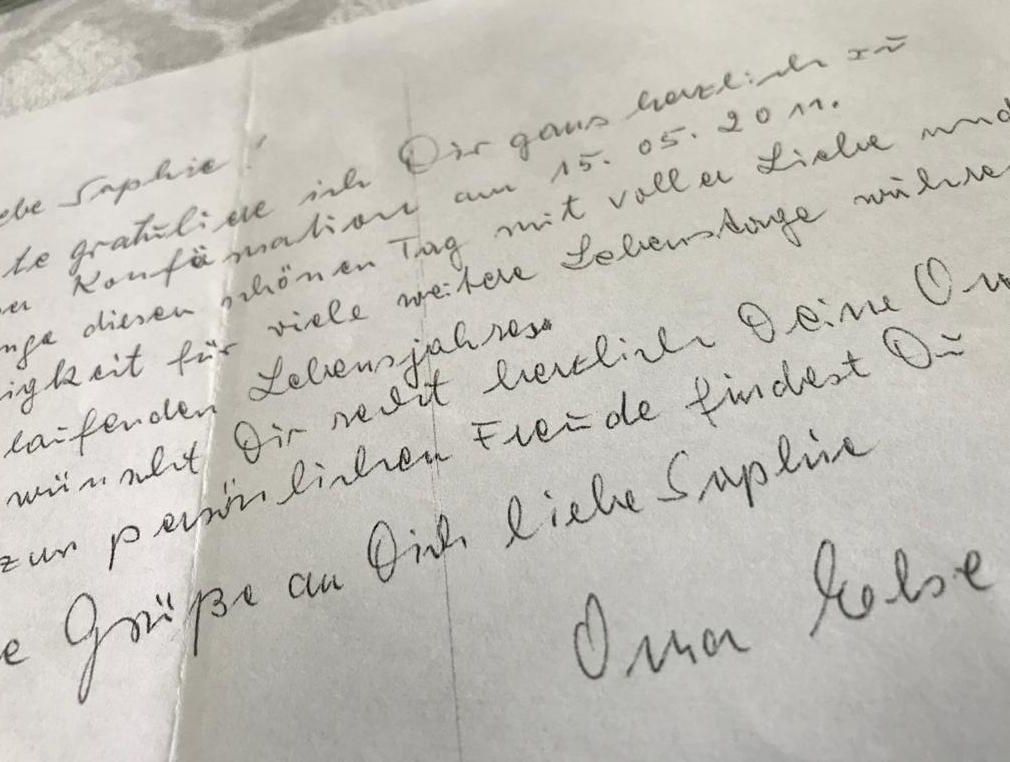 ebe Saphie!
te gratuliere ich Dir ganz herzlich zu
er Konfämation am 15. 05. 2011.
nge diesen schönen Tag mit voller Liebe und
igkeit für viele weitere Lebenstage währe
laufenden Lebensjahres.
wünscht Dir recht herzlich Deine Om
zur persönlichen Freude findest Du
e Grüße an Dich liebe Saphie
Oma